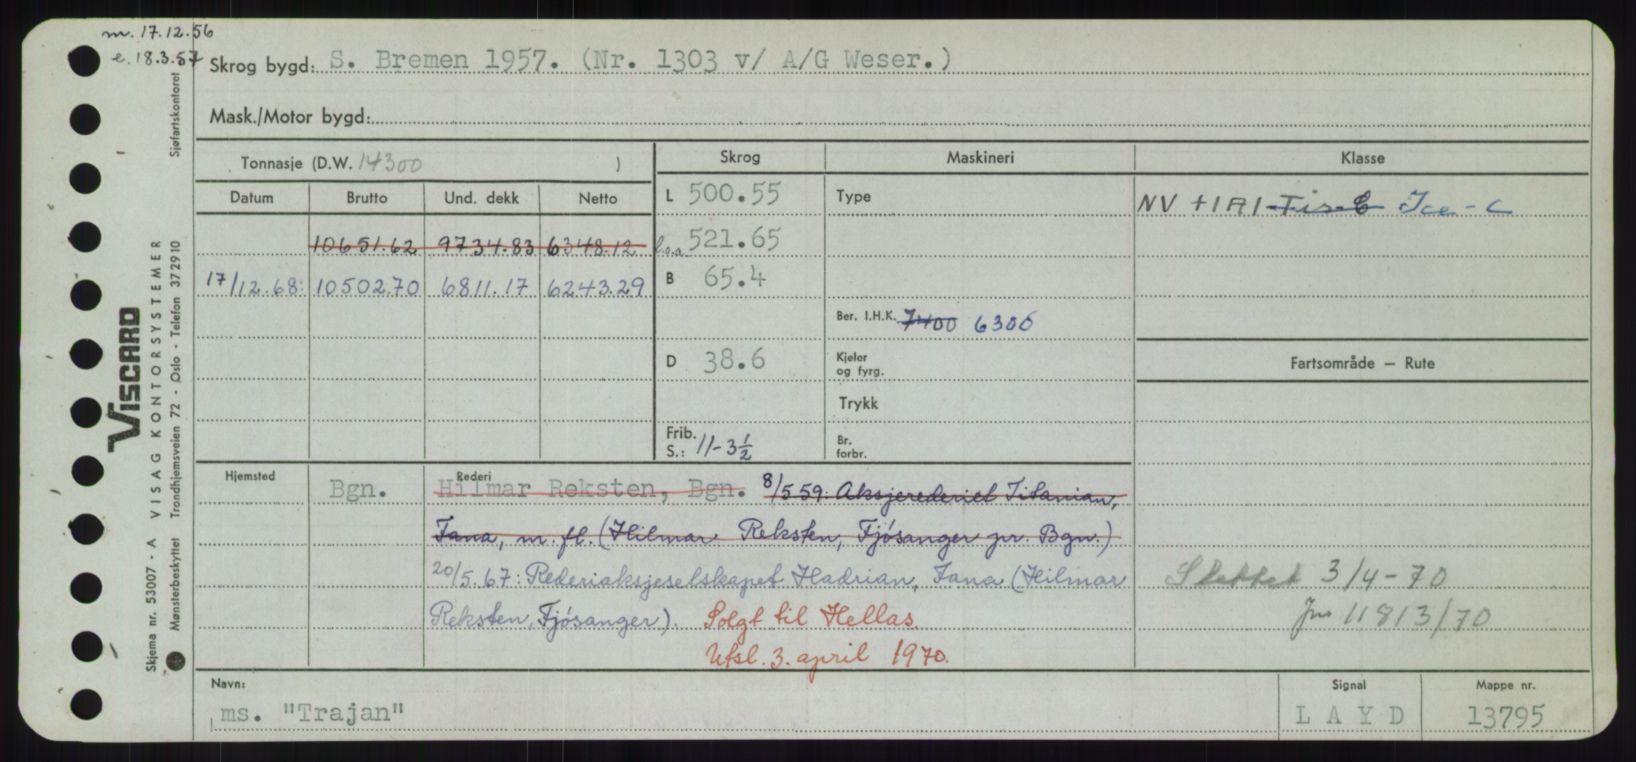 m. 17.12.56
e. 18.3.57
Skrog bygd: S. Bremen 1957. (Nr. 1303 v/ A/G Weser.)
Mask./Motor bygd:
Tonnasje (D.W. 14300 )
Skrog
Maskineri
Klasse
Datum
Brutto
Und. dekk
Netto
L 500.55
Type
NV +1A1 Ice-C
10651.62 9734.83 6348.12
l.o.a. 521.65
17/12.68: 10502.70 6811.17 6243.29
B 65.4
Ber. I.H.K. 7400 6300
D 38.6
Kjeler og fyrg.
Fartsområde – Rute
Trykk
Frib. S.: 11-3½
Br. forbr.
Hjemsted
Bgn.
Rederi
Hilmar Reksten, Bgn. 8/5.59: Aksjerederiet Titanian,
Tana, m. fl. (Hilmar Reksten, Fjøsanger pr. Bgn.)
20/5.67: Rederiaksjeselskapet Hadrian, Tana (Hilmar
Reksten, Fjøsanger). Solgt til Hellas.
Utsl. 3. april 1970.
Slettet 3/4-70
Jnr 11813/70
Navn:
ms. "Trajan"
Signal
L A Y D
Mappe nr.
13795
VISCARD
VISAG KONTORSYSTEMER
Skjema nr. 53007 - A
Mønsterbeskyttet Trondhjemsveien 72 - Oslo - Telefon 372910
Sjøfartskontoret